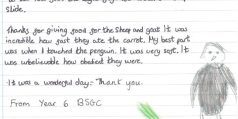 slide.
Thanks for giving food for the sheep and goat. It was
incredible how fast they ate the carrot. My best part
was when I touched the penguin. It was very soft. It
was unbelievable how obedient they were.
It was a wonderful day. Thank you.
From Year 6 BSGC